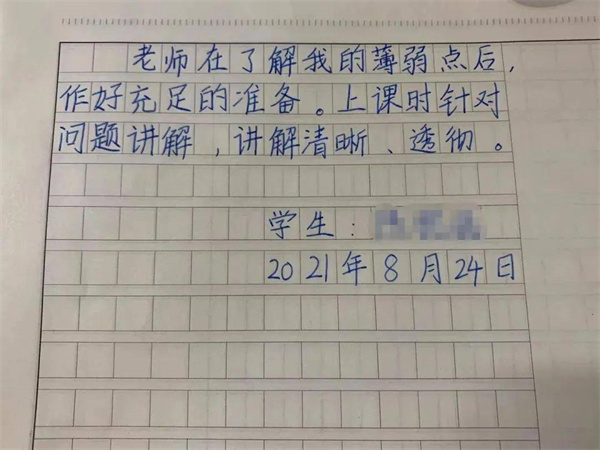 老师在了解我的薄弱点后,
作好充足的准备。上课时针对
问题讲解,讲解清晰、透彻。
学生:
2021年8月24日